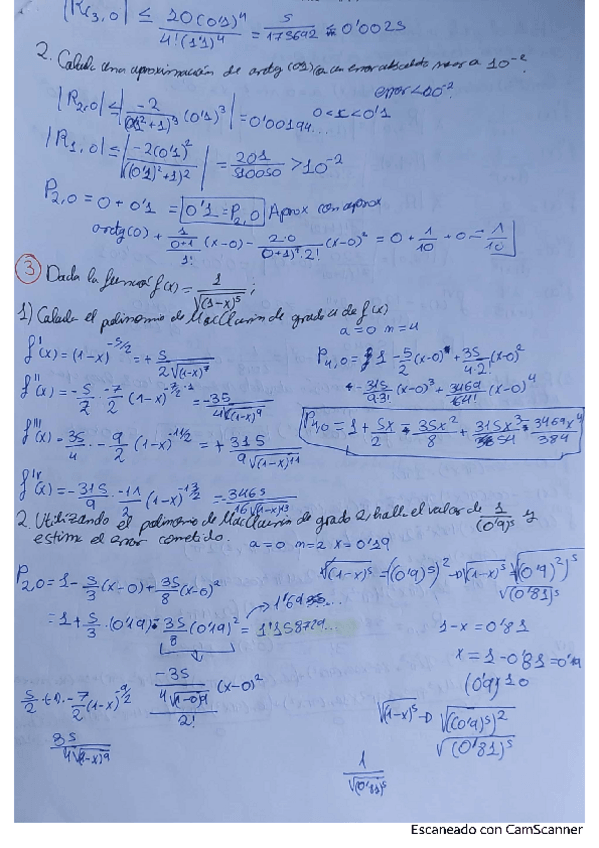 |R₃,₀| ≤ 20(0'1)⁴ / 4!(1'1)⁴ = 5 / 175692 ≤ 0'0025
2. Calcula una aproximación de arctg (0'1) con un error absoluto menor a 10⁻².
error < 10⁻².
|R₂,₀| ≤ | -2 / (0²+1)³ (0'1)³ | = 0'00194... 0 < x < 0'1
|R₁,₀| ≤ | -2(0'1)² / ((0'1)²+1)² | = 201 / 510050 > 10⁻²
P₂,₀ = 0 + 0'1 = 0'1 = P₂,₀ Aprox con aprox
arctg(0) + 1/(0+1) / 1! (x-0) - 2·0 / (0+1)²·2! (x-0)² = 0 + 1/10 + 0 = 1/10
3 Dada la función f(x) = 1 / √(1-x)⁵ ;
1) Calcula el polinomio de MacClaurin de grado 4 de f(x)
a=0 m=4
f'(x) = (1-x)^-5/2 = + 5 / 2√(1-x)⁷
P₄,₀ = 1 - 5/2 (x-0) + 35/4·2! (x-0)²
f''(x) = -5/2 · -7/2 (1-x)^-7/2-1 = -35 / 4√(1-x)⁹
+ -315/9·3! (x-0)³ + 3469/16 4! (x-0)⁴
f'''(x) = 35/4 · -9/2 (1-x)^-11/2 = + 315 / 9√(1-x)¹¹
P₄,₀ = 1 + 5x/2 + 35x²/8 + 315x³/54 + 3469x⁴/384
f^IV(x) = -315/9 · -11/2 (1-x)^-13/2 = 3465 / 16√(1-x)¹³
2. Utilizando el polinomio de MacClaurin de grado 2, halle el valor de 1/(0'9)⁵ y
estime el error cometido. a=0 m=2 x=0'19
P₂,₀ = 1 - 5/3 (x-0) + 35/8 (x-0)²
√(1-x)⁵ = (0'9)⁵)² → √(1-x)⁵ = √(0'9)²)⁵
√(0'81)⁵
→ 1'69
= 1 + 5/3 · (0'19) + 35/8 (0'19)² = 1'158729...
1-x = 0'81
x = 1-0'81 = 0'19
-35 / 4√(1-0)⁹ / 2! (x-0)²
5/2 · (-1) · -7/2 (1-x)^-9/2
35 / 4√(1-x)⁹
√(1-x)⁵ → √((0'9)⁵)²
√(0'81)⁵
1 / √(0'81)⁵
Escaneado con CamScanner